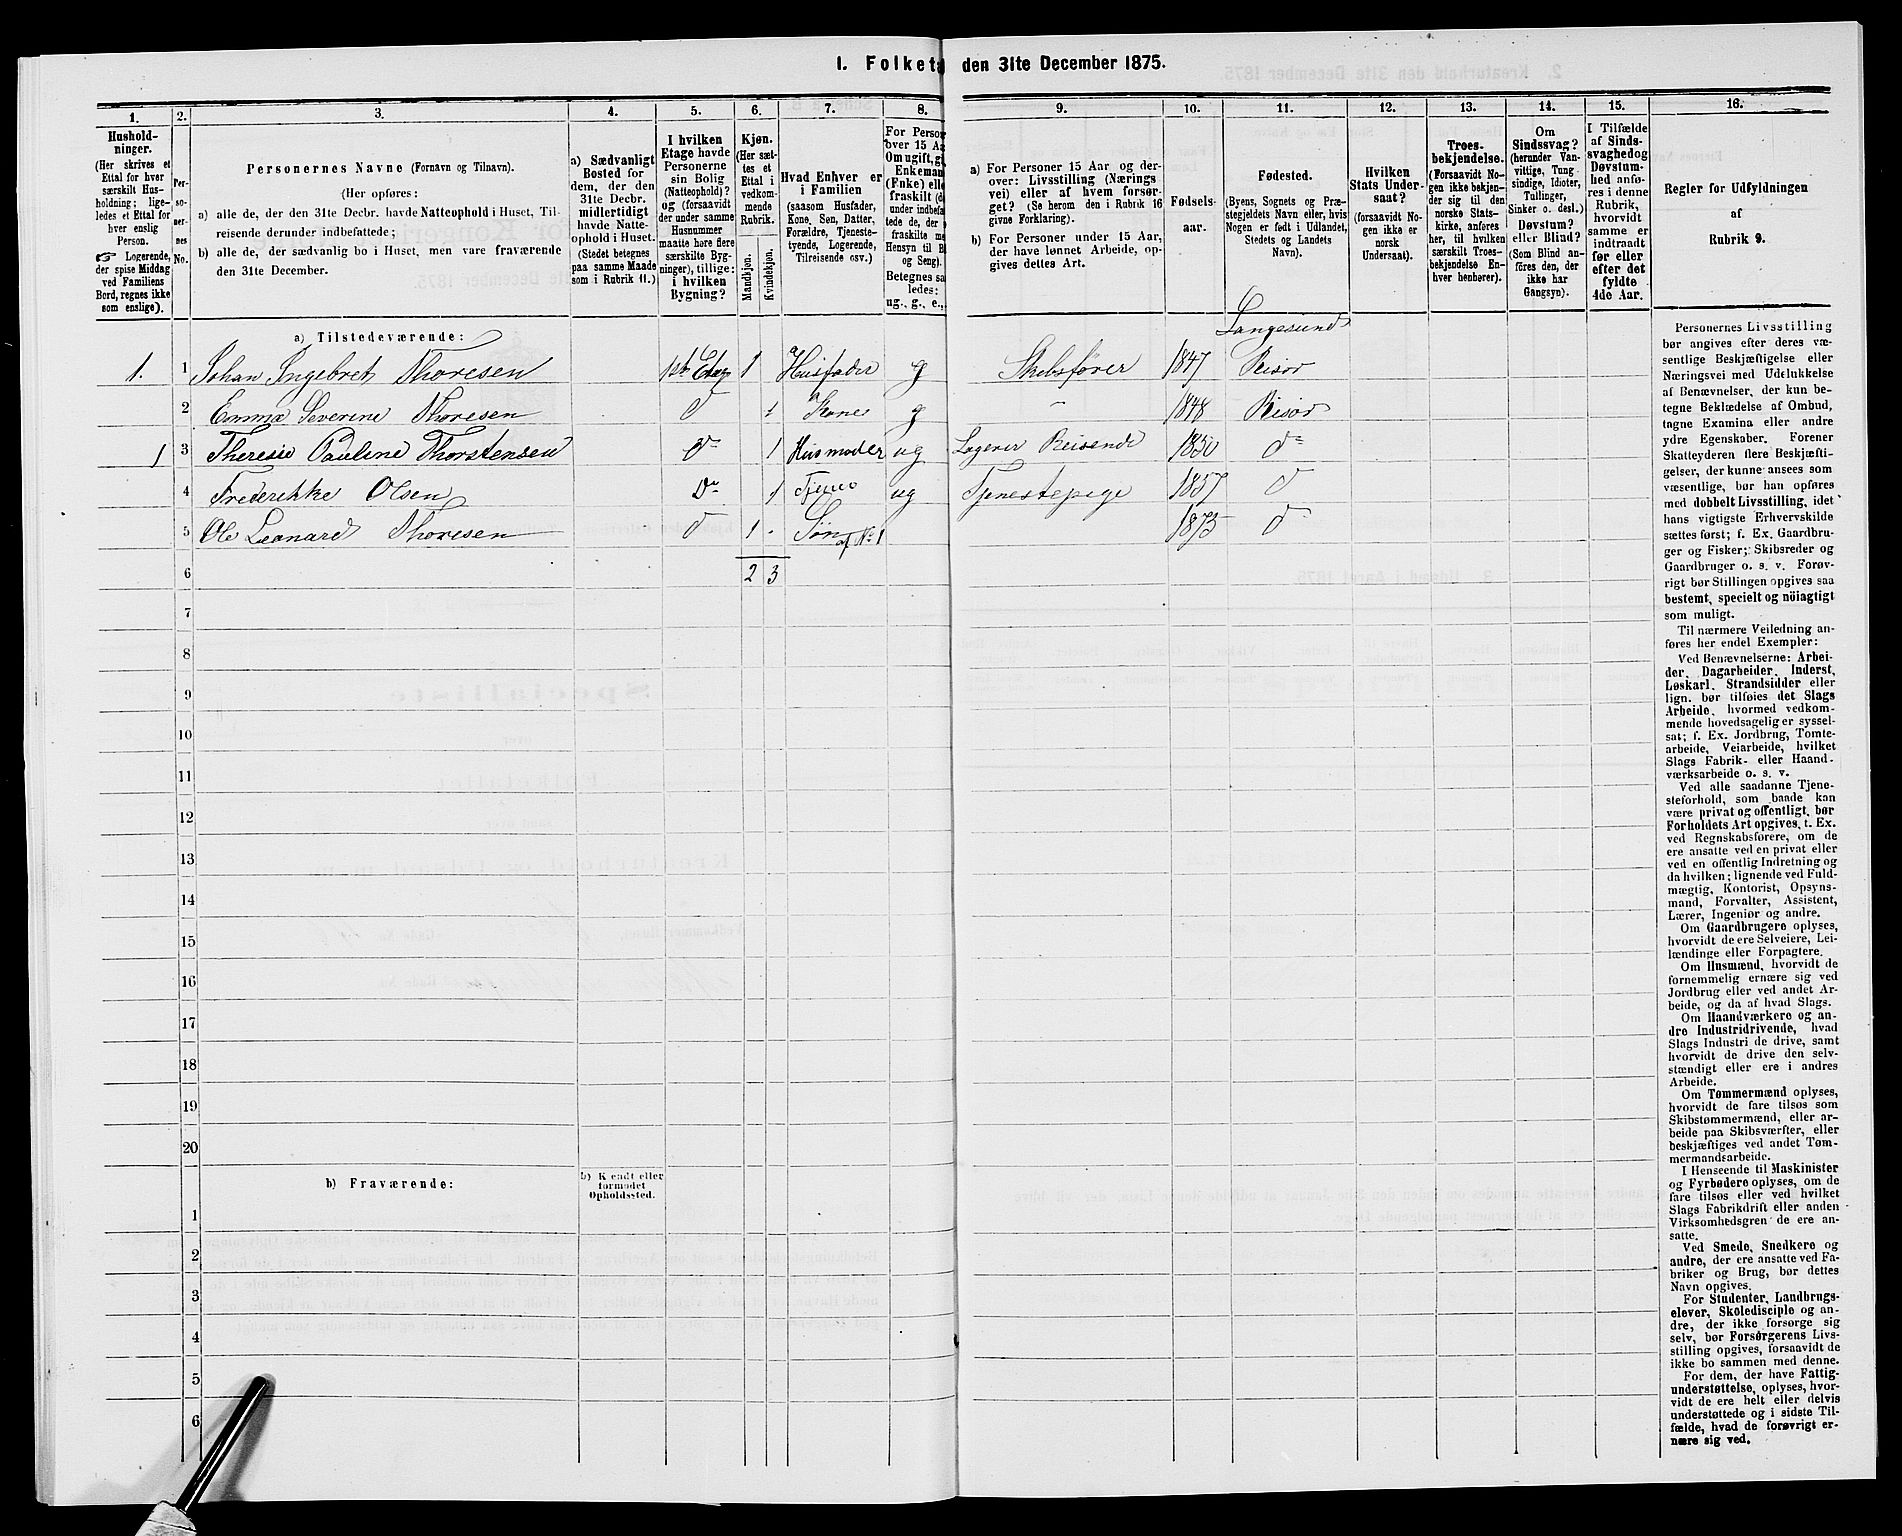 1. Folket den 31te December 1875.
1. 2. 3. 4. 5. 6. 7. 8. 9. 10. 11. 12. 13. 14. 15. 16.
Hushold-
ninger.
(Her skrives et
Ettal for hver
særskilt Hus-
holdning; lige-
ledes et Ettal for
hver enslig
Person.
☞ Logerende,
der spise Middag
ved Familiens
Bord, regnes ikke
som enslige).
Per-
so-
ner-
nes
No.
Personernes Navne (Fornavn og Tilnavn).
(Her opføres:
a) alle de, der den 31te Decbr. havde Natteophold i Huset, Til-
reisende derunder indbefattede;
b) alle de, der sædvanlig bo i Huset, men vare fraværende
den 31te December.
a) Sædvanligt
Bosted for
dem, der den
31te Decbr.
midlertidigt
havde Natte-
ophold i Huset.
(Stedet betegnes
paa samme Maade
som i Rubrik 11.)
I hvilken
Etage havde
Personerne
sin Bolig
(Natteophold)?
og (forsaavidt
der under samme
Husnummer
maatte høre flere
særskilte Byg-
ninger), tillige:
i hvilken
Bygning?
Kjøn.
(Her sæt-
tes et
Ettal i
vedkom-
mende
Rubrik.
Mandkjøn.
Kvindekjøn.
Hvad Enhver er
i Familien
(saasom Husfader,
Kone, Søn, Datter,
Forældre, Tjeneste-
tyende, Logerende,
Tilreisende osv.)
For Person
over 15 Aa
Om ugift, gi
Enkeman
(Enke) elle
fraskilt (d
under indbefat
tede de, der
fraskilte me
Hensyn til B
og Seng).
Betegnes saa
ledes:
ug., g., e.,
a) For Personer 15 Aar og der-
over: Livsstilling (Nærings
vei) eller af hvem forsør-
get? (Se herom den i Rubrik 16
givne Forklaring).
b) For Personer under 15 Aar,
der have lønnet Arbeide, op-
gives dettes Art.
Fødsels-
aar.
Fødested.
(Byens, Sognets og Præ-
stegjeldets Navn eller, hvis
Nogen er født i Udlandet,
Stedets og Landets
Navn).
Hvilken
Stats Under-
saat?
(forsaavidt No-
gen ikke er
norsk
Undersaat).
Troes-
bekjendelse.
(Forsaavidt No-
gen ikke bekjen-
der sig til den
norske Stats-
kirke, anføres
her, til hvilken
særskilt Troes-
bekjendelse En-
hver henhører).
Om
Sindssvag?
(herunder Van-
vittige, Tung
sindige, Idioter,
Tullinger,
Sinker o. desl.)
Døvstum?
eller Blind?
(Som Blind an-
føres den, der
ikke har
Gangsyn).
I Tilfælde
af Sinds-
svaghed og
Døvstum-
hed anfø-
res i denne
Rubrik,
hvorvidt
samme er
indtraadt
før eller
efter det
fyldte
4de Aar.
Regler for Udfyldningen
af
Rubrik 9.
a) Tilstedeværende:
Langesund
1. 1 Johan Ingebret Thoresen 1ste Etage 1 Husfader g Skibsfører 1847 Risør
2 Emma Severine Thoresen do 1 Kone g " 1848 Risør
1 3 Theresie Pauline Thorstensen do 1 Husmoder ug Logerer Reisende 1850 do
4 Frederikke Olsen do 1 Tjener ug Tjenestepige 1857 do
5 Ole Leonard Thoresen do 1 Søn af No 1 1875 do
6 2 3
7
8
9
10
11
12
13
14
15
16
17
18
19
20
b) Fraværende:
b) Kjendt eller
formodet
Opholdssted.
1
2
3
4
5
6
Personernes Livsstilling
bør angives efter deres væ-
sentlige Beskjæftigelse eller
Næringsvei med Udelukkelse
af Benævnelser, der kun be-
tegne Beklædelse af Ombud,
tagne Examina eller andre
ydre Egenskaber. Forener
Skatteyderen flere Beskjæfti-
gelser, der kunne ansees som
væsentlige, bør han opføres
med dobbelt Livsstilling, idet
hans vigtigste Erhvervskilde
sættes først; f. Ex. Gaardbru-
ger og Fisker; Skibsreder og
Gaardbruger o. s. v. Forøv-
rigt bør Stillingen opgives saa
bestemt, specielt og nöiagtigt
som muligt.
Til nærmere Veiledning an-
føres her endel Exempler:
Ved Benævnelserne: Arbei-
der, Dagarbeider, Inderst,
Løskarl, Strandsidder eller
lign. bør tilføies det Slags
Arbeide, hvormed vedkom-
mende hovedsagelig er syssel-
sat; f. Ex. Jordbrug, Tomte-
arbeide, Veiarbeide, hvilket
Slags Fabrik- eller Haand-
værksarbeide o. s. v.
Ved alle saadanne Tjene-
steforhold, som baade kan
være privat og offentligt, bør
Forholdets Art opgives, t. Ex.
ved Regnskabsførere, om de
ere ansatte ved en privat eller
ved en offentlig Indretning og
da hvilken; lignende ved Fuld-
mægtig, Kontorist, Opsyns-
mand, Forvalter, Assistent,
Lærer, Ingeniør og andre.
Om Gaardbrugere oplyses,
hvorvidt de ere Selveiere, Lei-
lændinge eller Forpagtere.
Om Husmænd, hvorvidt de
fornemmelig ernære sig ved
Jordbrug eller ved andet Ar-
beide, og da af hvad Slags.
Om Haandværkere og an-
dre Industridrivende, hvad
Slags Industri de drive, samt
hvorvidt de drive den selv-
stændigt eller ere i andres
Arbeide.
Om Tømmermænd oplyses,
hvorvidt de fare tilsøs som
Skibstømmermænd, eller ar-
beide paa Skibsværfter, eller
beskjæftiges ved andet Tøm-
mermandsarbeide.
I Henseende til Maskinister
og Fyrbødere oplyses, om de
fare tilsøs eller ved hvilket
Slags Fabrikdrift eller anden
Virksomhedsgren de ere an-
satte.
Ved Smede, Snedkere og
andre, der ere ansatte ved Fa-
briker og Brug, bør dettes
Navn opgives.
For Studenter, Landbrugs-
elever, Skoledisciple og an-
dre, der ikke forsørge sig
selv, bør Forsørgerens Livs-
stilling opgives, forsaavidt de
ikke bo sammen med denne.
For dem, der have Fattig-
understøttelse, oplyses, hvor-
vidt de ere helt eller delvis
understøttede og i sidste Til-
fælde, hvad de forøvrigt er-
nære sig ved.